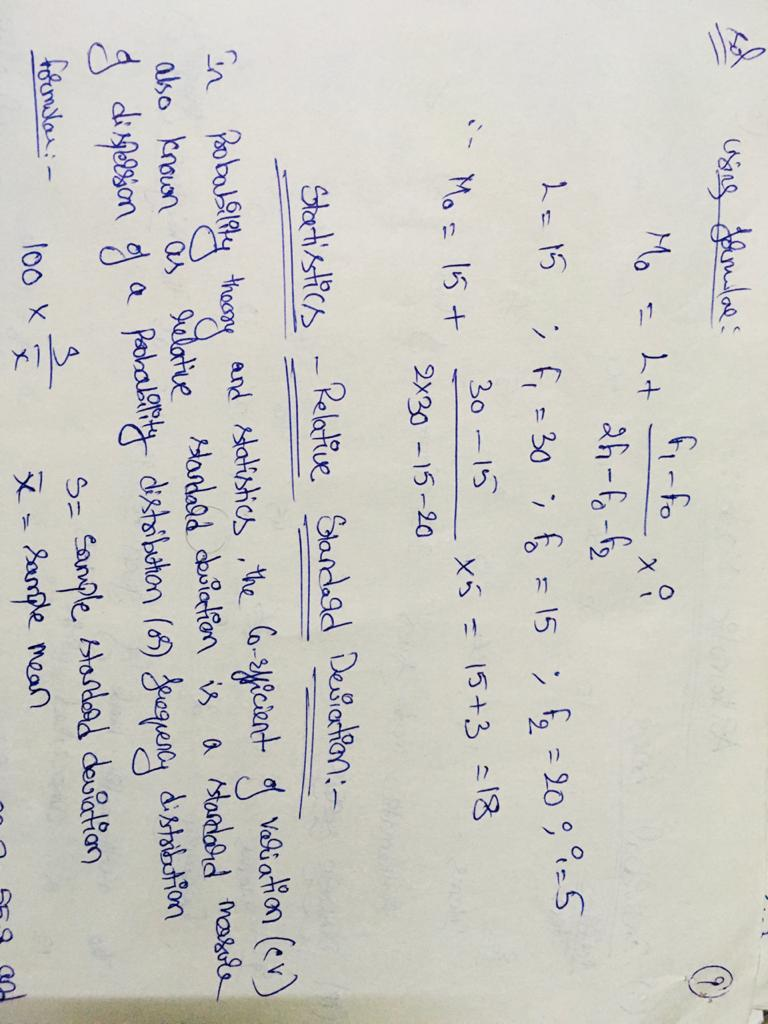 9.
Sol Using formulae:
M₀ = L + f₁ - f₀ / 2f₁ - f₀ - f₂ × i
L = 15 ; f₁ = 30 ; f₀ = 15 ; f₂ = 20 ; i = 5
∴ M₀ = 15 + 30 - 15 / 2×30 - 15 - 20 × 5 = 15 + 3 = 18
Statistics - Relative Standard Deviation:-
In probability theory and statistics, the Co-efficient of variation (cv)
also known as relative standard deviation is a standard measure
of dispersion of a probability distribution (or) frequency distribution
formulae:- 100 × s / x̄
s = sample standard deviation
x̄ = sample mean